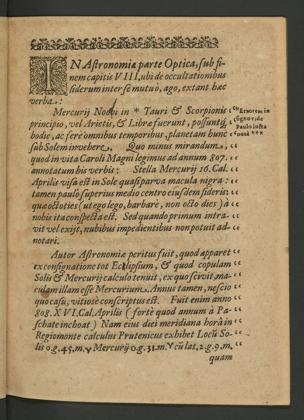 IN Astronomiæ parte Optica, sub fi-
nem capitis VIII, ubi de occultationibus
siderum inter se mutuo, ago, extant hæc
verba:
Mercurij Nodi in * Tauri & Scorpionis
principio, vel Arietis, & Libræ fuerunt, possuntq;
hodie, ac fere omnibus temporibus, planetam hunc
sub Solem invehere. Quo minus mirandum,
quod in vita Caroli Magni legimus ad annum 807.
annotatum his verbis: Stella Mercurij 16. Cal.
Aprilis visa est in Sole quasi parva macula nigra:
tamen paulo superius medio centro eiusdem sideris
quæ octoties (ut ego lego, barbarè, non octo dies) à
nobis ita conspecta est. Sed quando primum intra-
vit vel exijt, nubibus impedientibus non potuit ad-
notari.
* Errorem in
signo vide
Paulo infra
Autor Astronomiæ peritus fuit, quod apparet
ex consignatione tot Eclipsium, & quod copulam
Solis & Mercurij calculo tenuit, ex quo scivit, ma-
culam illam esse Mercurium. Annus tamen, nescio
quo casu, vitiosè conscriptus est. Fuit enim anno
808. XVI. Cal. Aprilis (fortè quod annum à Pa-
schate inchoat) Nam eius diei meridiana horâ in
Regiomonte calculus Prutenicus exhibet Locũ So-
lis 0.g.45.m. ♈ Mercurij 0.g.31.m. ♈ cũ lat. 2.g.9.m.
quam